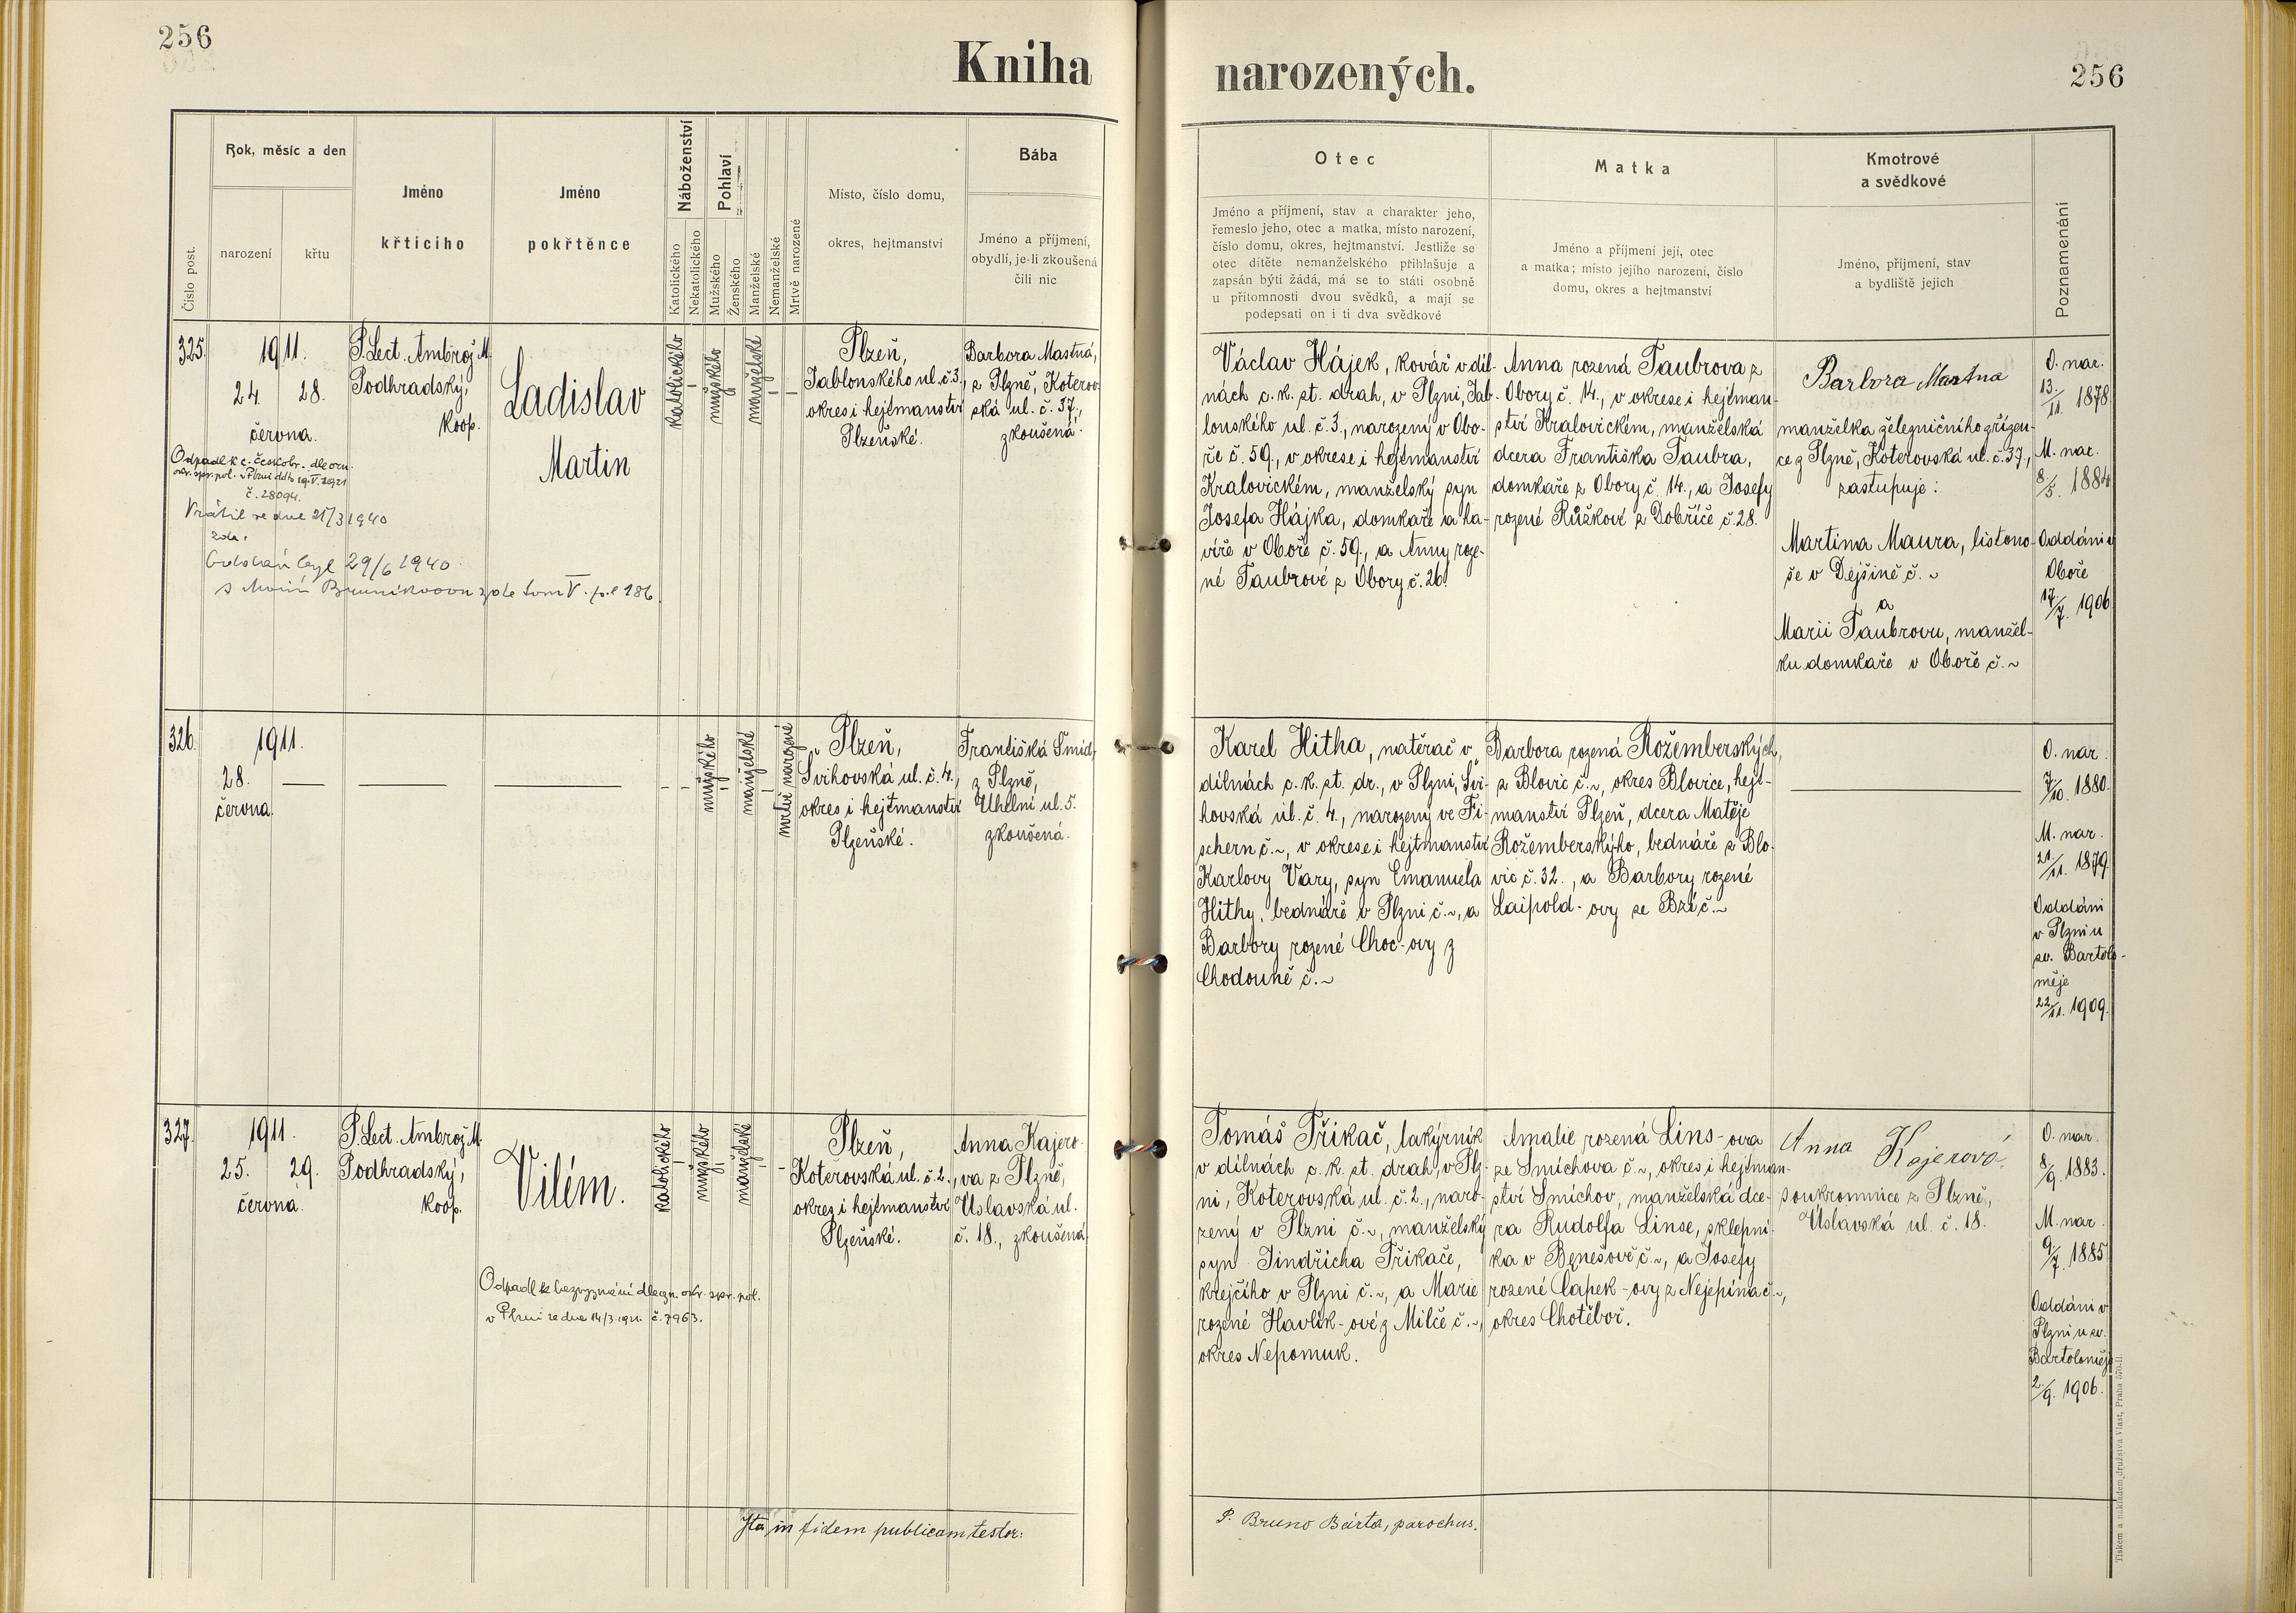 256
Kniha
narozených.
256
Číslo post.
Rok, měsíc a den
narození
křtu
Jméno
křtícího
Jméno
pokřtěnce
Náboženství
Katolického
Nekatolického
Pohlaví
Mužského
Ženského
Manželské
Nemanželské
Mrtvě narozené
Místo, číslo domu,
okres, hejtmanství
Bába
Jméno a příjmení,
obydlí, je-li zkoušená
čili nic
Otec
Jméno a příjmení, stav a charakter jeho,
řemeslo jeho, otec a matka, místo narození,
číslo domu, okres, hejtmanství. Jestliže se
otec dítěte nemanželského přihlašuje a
zapsán býti žádá, má se to státi osobně
u přítomnosti dvou svědků, a mají se
podepsati on i ti dva svědkové
Matka
Jméno a příjmení její, otec
a matka; místo jejího narození, číslo
domu, okres a hejtmanství
Kmotrové
a svědkové
Jméno, příjmení, stav
a bydliště jejich
Poznamenání
325.
1911.
24. 28.
června.
P. Lect. Ambrož M.
Podhradský,
koop.
Ladislav
Martin
katolického
mužského
manželské
Plzeň,
Jablonského ul. č. 3.,
okres i hejtmanství
Plzeňské.
Barbora Mastná,
z Plzně, Koterov-
ská ul. č. 37.,
zkoušená.
Odpadl k c. českobr. dle ozn.
okr. spr. pol. v Plzni ddto 19. V. 1921
č. 28094.
Vrátil se dne 21/3 1940
zde.
Oddán byl 29/6 1940
Václav Hájek, kovář v díl-
nách c. k. st. drah, v Plzni, Jab-
lonského ul. č. 3., narozený v Obo-
ře č. 59., v okrese i hejtmanství
Kralovickém, manželský syn
Josefa Hájka, domkáře a ha-
víře v Oboře č. 59., a Anny roze-
né Taubrové z Obory č. 26.
Anna rozená Taubrova z
Obory č. 14., v okrese i hejtman-
ství Kralovickém, manželská
dcera Františka Taubra,
domkaře z Obory č. 14., a Josefy
rozené Růžkové z Dobříče č. 28.
Barbora Mastna
manželka železničního zřízen-
ce z Plzně, Koterovská ul. č. 37.,
zastupuje:
Martina Maura, listono-
še v Dejšině č. ~
a
Marii Taubrovu, manžel-
ku domkaře v Oboře č. ~
O. nar.
13./11. 1878.
M. nar.
8/5. 1884
Oddáni v
Oboře
17/7. 1906
326.
1911.
28.
června.
mužského
manželské
mrtvě narozené
Plzeň,
Švihovská ul. č. 4.,
okres i hejtmanství
Plzeňské.
Františká Šmid,
z Plzně,
Uhelní ul. 5.
zkoušená.
Karel Hitha, natěrač v
dílnách c. k. st. dr., v Plzni, Švi-
hovská ul. č. 4., narozený ve Fi-
schern č. ~, v okrese i hejtmanství
Karlovy Vary, syn Emanuela
Hithy, bednáře v Plzni č. ~, a
Barbory rozené Choc-ovy z
Chodouně č. ~
Barbora rozená Rožemberských,
z Blovic č. ~, okres Blovice, hejt-
manství Plzeň, dcera Matěje
Rožemberskýho, bednáře z Blo-
vic č. 32., a Barbory rozené
Laipold-ovy ze Bzí č. ~
O. nar.
7/10. 1880.
M. nar.
21./11. 1879.
Oddáni
v Plzni u
sv. Bartolo-
měje
22/11. 1909.
327.
1911.
25. 29.
června.
P. Lect. Ambrož M.
Podhradský,
koop.
Vilém.
katolického
mužského
manželské
Plzeň,
Koterovská ul. č. 2.,
okres i hejtmanství
Plzeňské.
Anna Kajero-
va z Plzně,
Úslavská ul.
č. 18., zkoušená
Odpadl k bezvyznání dle ozn. okr. spr. pol.
v Plzni ze dne 14/3. 1921. č. 7963.
Tomáš Třikač, lakýrník
v dílnách c. k. st. drah, v Plz-
ni, Koterovská ul. č. 2., naro-
zený v Plzni č. ~, manželský
syn Jindřicha Třikače,
krejčího v Plzni č. ~, a Marie
rozené Havlík-ové z Milče č. ~,
okres Nepomuk.
Amalie rozená Lins-ova
ze Smíchova č. ~, okres i hejtman-
ství Smíchov, manželská dce-
ra Rudolfa Linse, sklepní-
ka v Benešově č. ~, a Josefy
rozené Čapek-ovy z Nejepína č. ~,
okres Chotěboř.
Anna Kajerová,
soukromnice z Plzně,
Úslavská ul. č. 18.
O. nar.
8/9. 1883.
M. nar.
9/7. 1885.
Oddáni v
Plzni u sv.
Bartoloměje
2./9. 1906.
Ita in fidem publicam testor:
P. Bruno Bárta, parochus.
Tiskem a nákladem družstva Vlast, Praha 570-II.